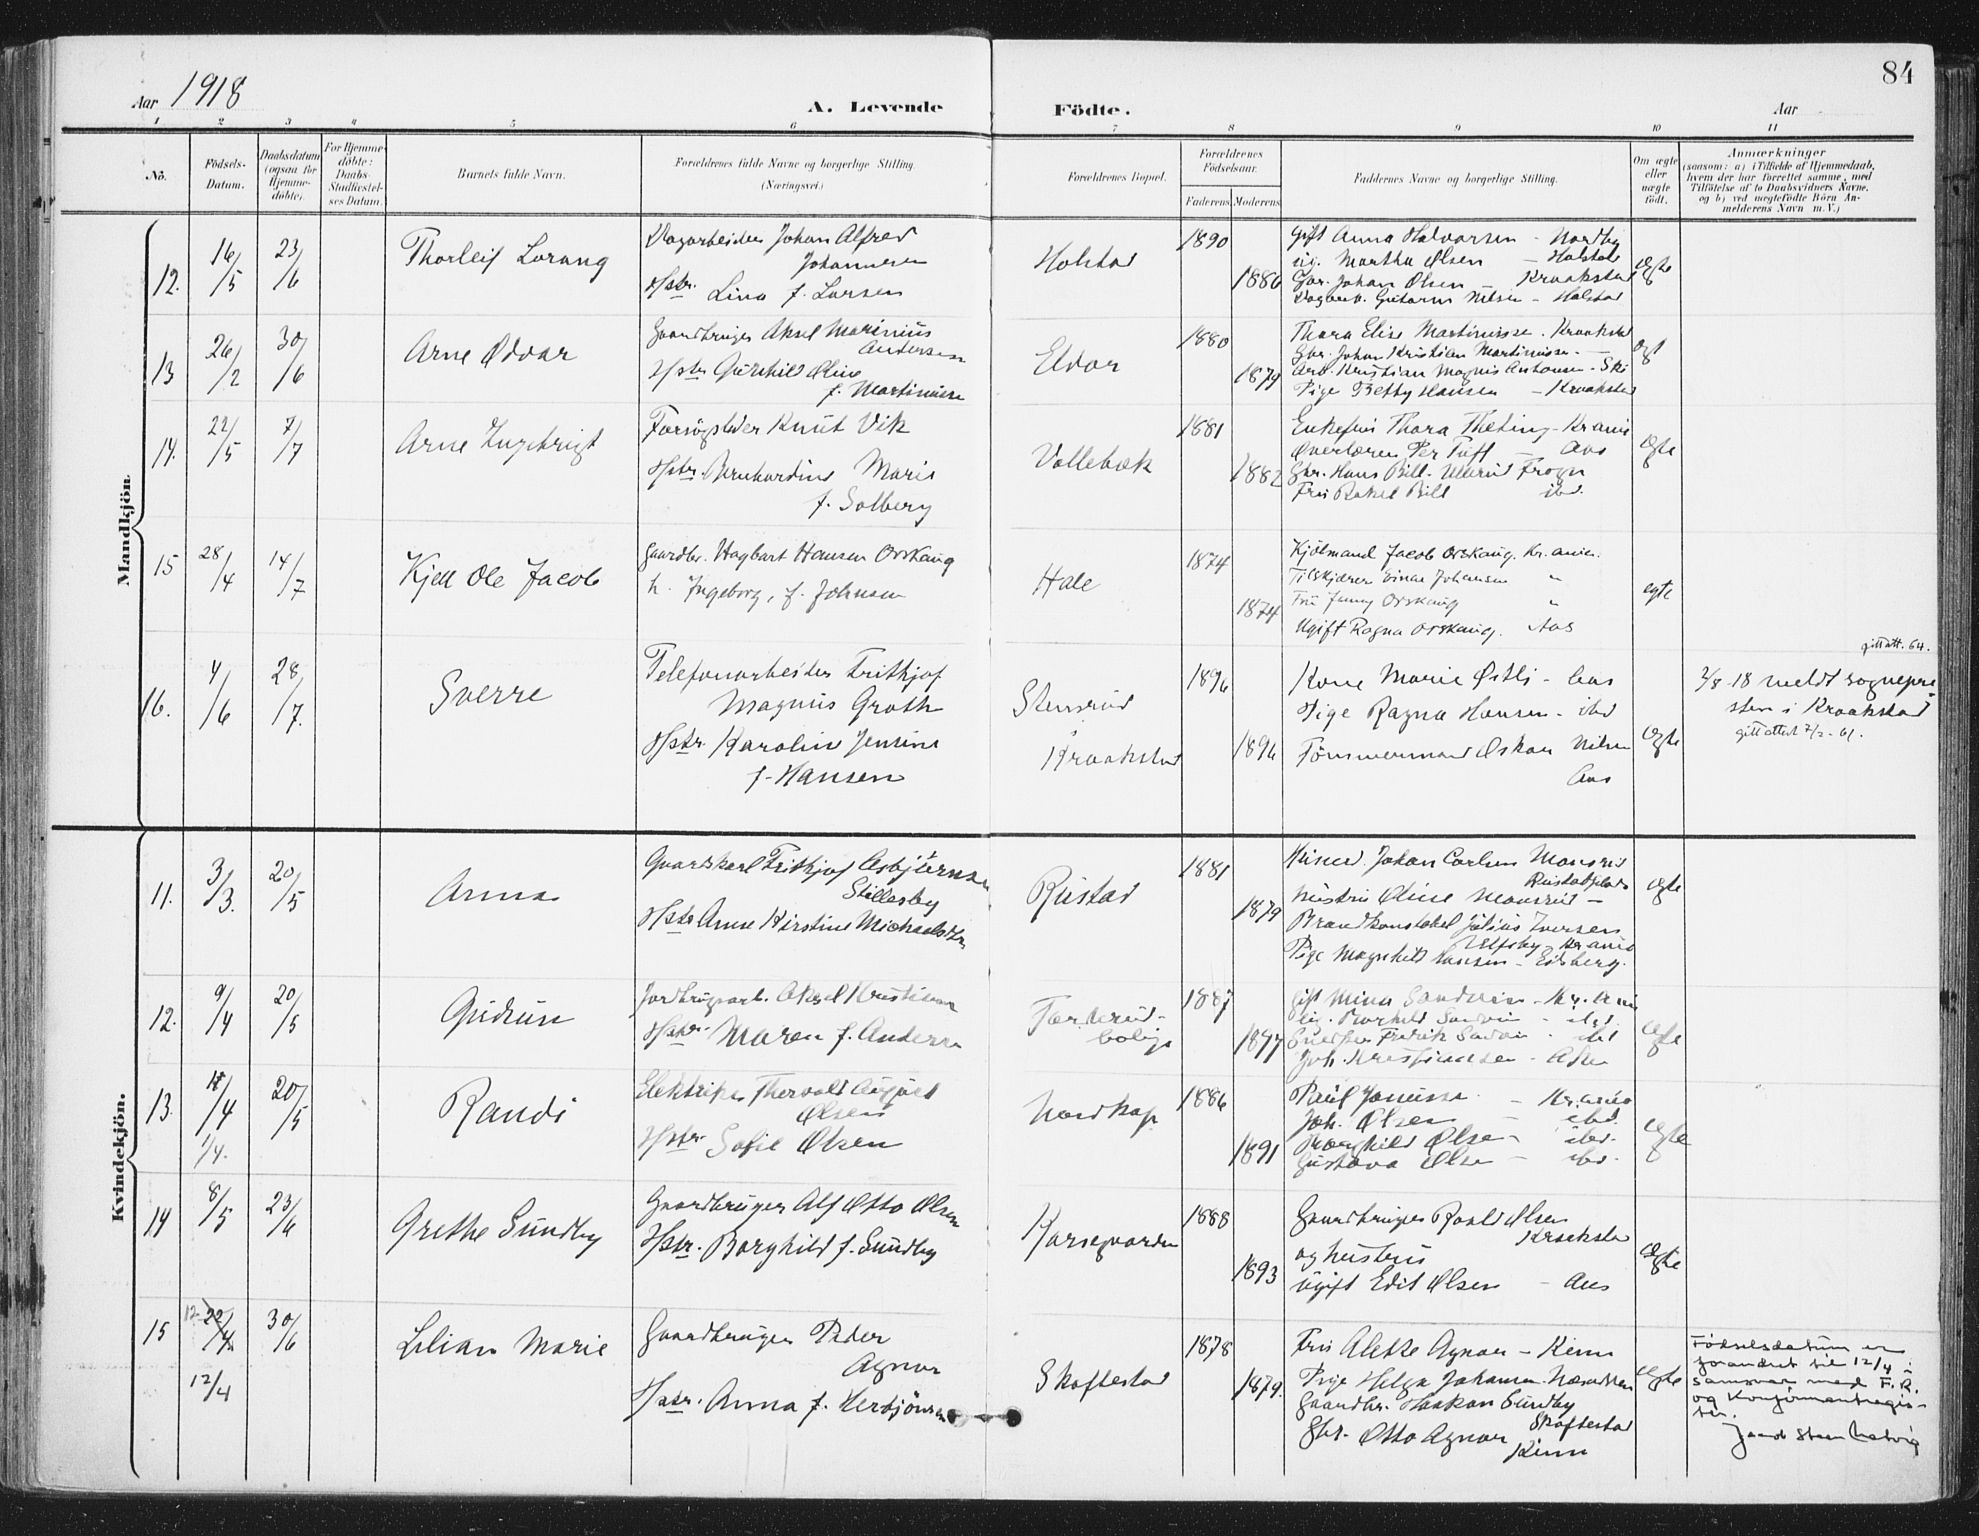 84
Aar 1918
A. Levende Födte.
Aar
1 2 3 4 5 6 7 8 9 10 11
No.
Födsels-Datum.
Daabsdatum (ogsaa for Hjemme-döbte).
For Hjemme-döbte: Daabs-Stadfæstel-ses Datum.
Barnets fulde Navn.
Forældrenes fulde Navne og borgerlige Stilling. (Næringsvei.)
Forældrenes Bopæl.
Forældrenes Födselsaar.
Faderens Moderens
Faddernes Navne og borgerlige Stilling.
Om ægte eller uægte födt.
Anmærkninger
(saasom: a) i Tilfælde af Hjemmedaab,
hvem der har forrettet samme, med
Tilföielse af to Daabsvidners Navne,
og b) ved uægtefödte Börn An-
melderens Navn m. V.)
Mandkjön.
12. 16/5 23/6 Thorleif Lorang
Johan Alfred
Johannesen
Hstr. Lina f. Larsen
Holstad
1890
1886
Gift Anna Halvorsen - Nordby
ug. Martha Olsen - Holstad
Gbr. Johan Olsen Kraakstad
Nilsen - Holstad
ægte
13 26/2 30/6 Arne Odvar
Gaardbruger Aksel Marinius
Andersen
Hstr. Oline
f. Martinisse
Eldor
1880
1879
Thora Elise Martinisse. Kraakst
Gbr. Johan Kristian Martinisse. -
Arb. Kristian Magnus Antonsen - Ski
Pige Betty Hansen - Kraakstad
14. 22/5 7/7 Arne Ingebrigt
Forsögsleder Knut Vik
Hstr. Bernhardine Marie
f. Solberg
Vollebæk
1881
1882
Enkefru Thora Theting - Krania
Overlærer Per Tuff - Aas
Gbr. Hans Bill - Ullerud Frogn
Fru Rakel Bill ibd.
ægte
15 28/4 14/7 Kjell Ole Jacob
Gaardbr. Hagbart Hansen Orskaug
h. Ingeborg, f. Johnsen
Hale
1874
1874
Kjölmand Jacob Orskaug. Kr.ania.
Tilskjærer Einar Johansen "
Fru Jenny Orskaug "
Ugift Ragna Orskaug. Aas
egte
16. 4/6 28/7. Sverre
Telefonarbeider Frithjof
Magnus Groth
Hstr. Karoline Jensine
f. Hansen
Stensrud
Kraakstad
1896
1896
Kone Marie Østli - Aas
Pige Ragna Hansen - ibd
Tömmermand Oskar Nilsen
Aas
ægte
gitt att. 64.
2/8 18 meldt sognepre-
sten i Kraakstad
gitt attest 2/2 - 61.
Kvindekjön.
11. 3/3. 20/5 Anna
Gaardskarl Frithjof Asbjörnsen
Stillesby
Hstr Anne Kirstine Michaelsen
Rustad
1881
1879
Johan Carlsen Monsrud
Rustadplads
Hustru Oline Monsrud -
Brandkonstabel Julius Iversen
Ulfsby - Kr.ania
Pige Magnhild Hansen - Eidsberg.
ægte
12. 9/4 20/5 Gudrun
Jordbrugsarb. Aksel Kristiansen
Hstr. Maren f. Andersen
Færderud-
bolig
1887
1897
Gift Mina Sandvin - Kr.ania
Ug. Borghild Sandvin - ibd.
Fredrik Sandvin - ibd
Joh. Kristiansen - Asker
ægte
13. 11/4 20/5 Randi
1/4.
Elektriker Thorvald August
Olsen
Hstr Sofie Olsen
Nordkap
1886
1891
Paul Jonisse - Kr.ania
Joh. Olsen - ibd.
Borghild Olsen - ibd.
Gustava Olsen - ibd.
ægte
14 8/5 23/6 Grethe Sundby
Gaardbruger Alf Otto Olsen
Hstr. Borghild f. Sundby
Korsegaarden
1888
1893
Gaardbruger Roald Olsen
Kraakstad
og hustru
Ugift Edit Olsen - Aas
ægte
15 12 22/4 30/6 Lilian Marie
12/4
Gaardbruger Peder
Agnor
Hstr. Anna f. Herbjönsen
Skoftestad
1878
1879.
Fru Alette Agnor - Kinn
Pige Helga Johansen Næsodden
Gaardbr. Haakon Sundby
Skoftestad
Gbr. Otto Agnor
Kinn
ægte
Födselsdatum er
forandret til 12/4 i
samsvar med F.R.
og Konfirmantregis-
ter.